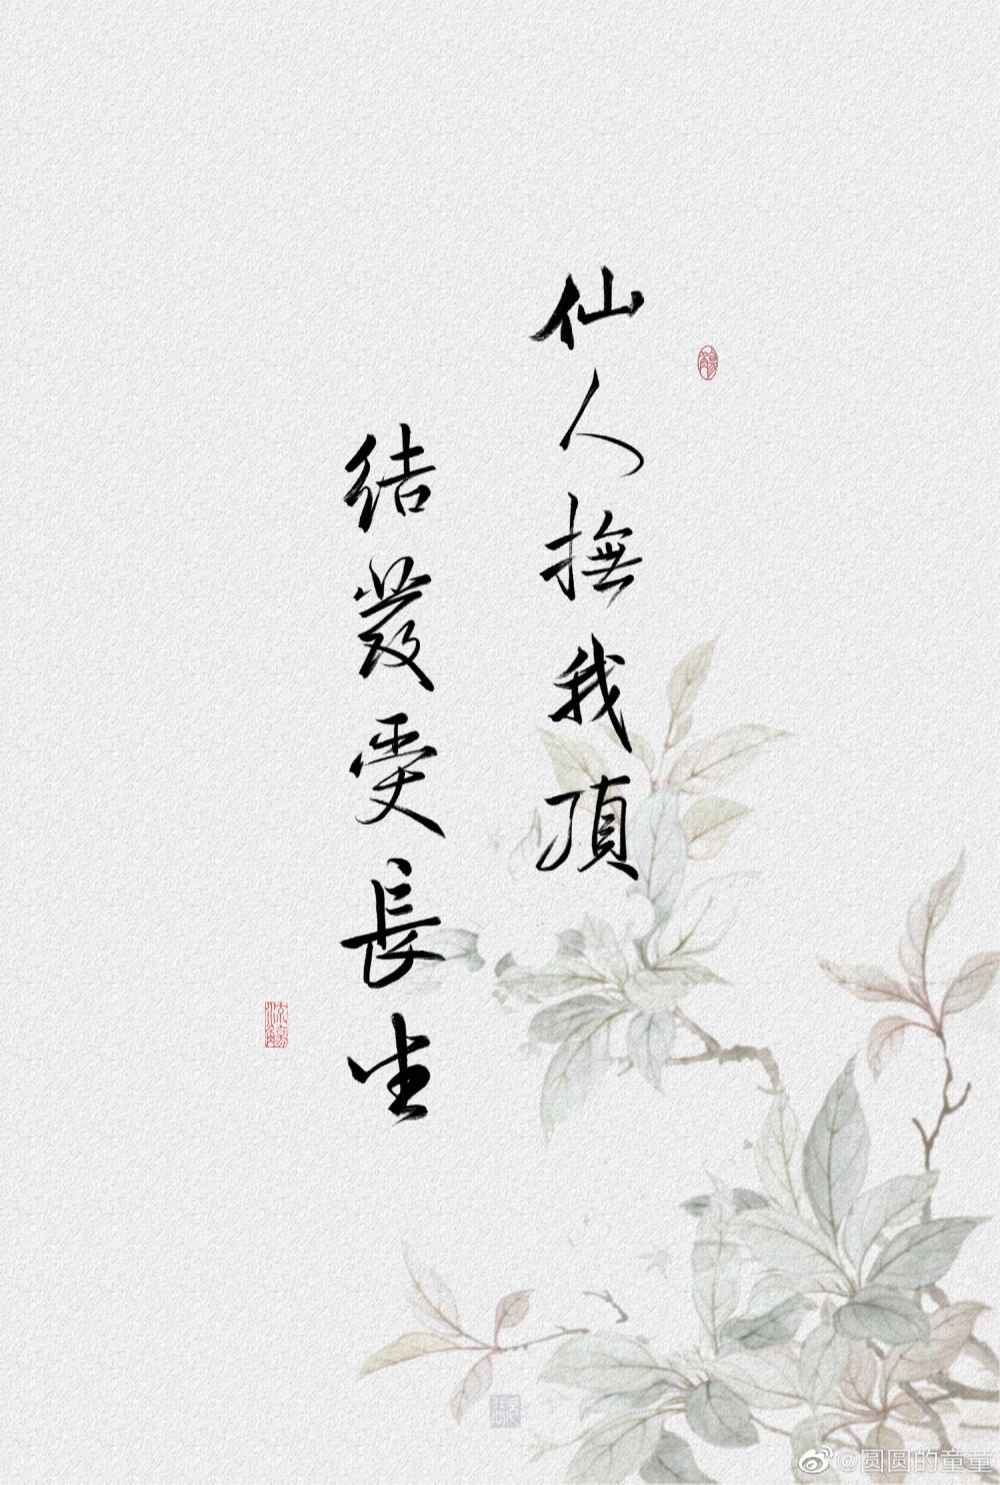 仙人撫我頂
結发受長生
@圆圆的童童